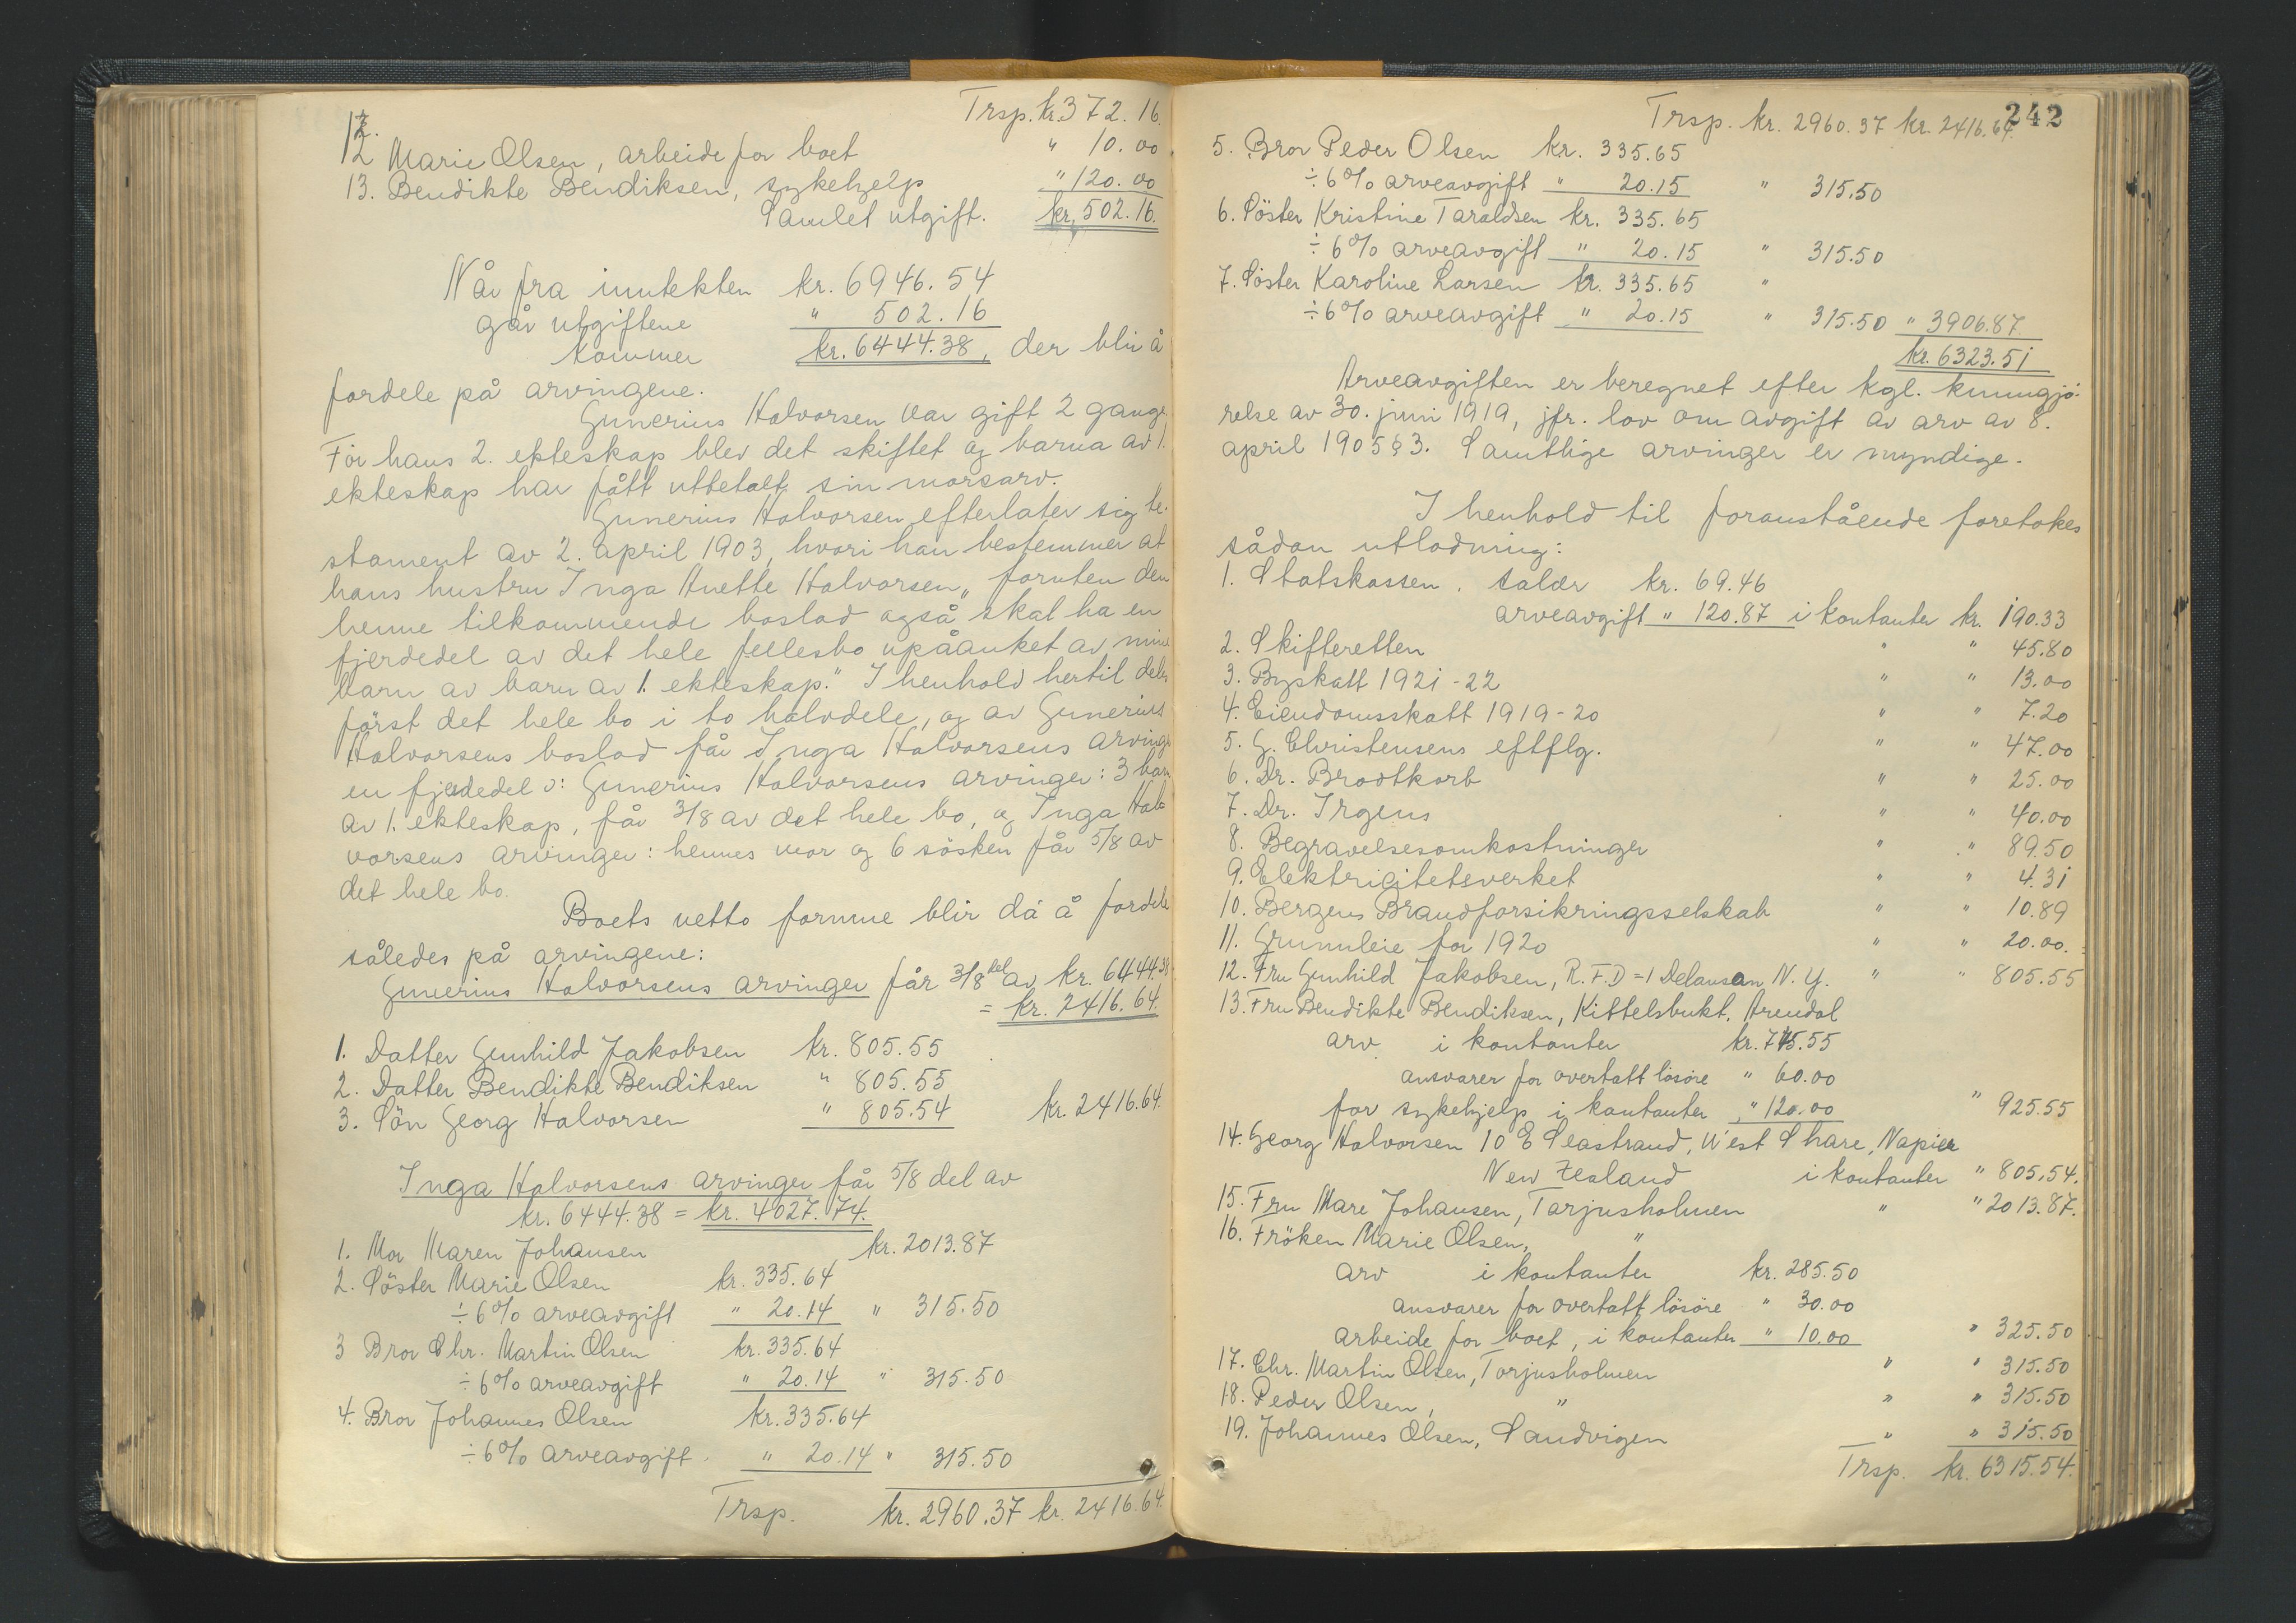 Trsp. kr. 372.16.
12. Marie Olsen, arbeide for boet " 10.00
13. Bendikte Bendiksen, sykehjelp " 120.00
Samlet utgift. kr. 502.16.
Når fra inntekten kr. 6946.54
går utgiftene " 502.16
kommer kr. 6444.38, der blir å
fordele på arvingene.
Gunerius Halvorsen var gift 2 gange.
Før hans 2. ekteskap blev det skiftet og barna av 1.
ekteskap har fått utbetalt sin morsarv.
Gunerius Halvorsen efterlater sig te-
stament av 2. april 1903, hvori han bestemmer at
hans hustru Inga Anette Halvorsen „foruten den
henne tilkommende boslod også skal ha en
fjerdedel av det hele fellesbo upåanket av mine
barn av barn av 1. ekteskap." I henhold hertil deles
først det hele bo i to halvdele, og av Gunerius
Halvorsens boslod får Inga Halvorsens arvinger
en fjerdedel ɔ: Gunerius Halvorsens arvinger: 3 barn
av 1. ekteskap, får 3/8 av det hele bo, og Inga Hal-
vorsens arvinger: hennes mor og 6 søsken får 5/8 av
det hele bo.
Boets netto formue blir da å fordele
således på arvingene:
Gunerius Halvorsens arvinger får 3/8 del av kr. 6444.38
= kr. 2416.64.
1. Datter Gunhild Jakobsen kr. 805.55
2. Datter Bendikte Bendiksen " 805.55
3. Sön Georg Halvorsen " 805.54 kr. 2416.64.
Inga Halvorsens arvinger får 5/8 del av
kr. 6444.38 = kr. 4027.74.
1. Mor Maren Johansen kr. 2013.87
2. Söster Marie Olsen kr. 335.64
÷ 6% arveavgift " 20.14 " 315.50
3 Bror Chr. Martin Olsen kr. 335.64
÷ 6% arveavgift " 20.14 " 315.50
4. Bror Johannes Olsen kr. 335.64
÷ 6% arveavgift " 20.14 " 315.50
Trsp. kr. 2960.37 kr. 2416.64.
242
Trsp. kr. 2960.37 kr. 2416.64.
5. Bror Peder Olsen kr. 335.65
÷ 6% arveavgift " 20.15 " 315.50
6. Söster Kristine Taraldsen kr. 335.65
÷ 6% arveavgift " 20.15 " 315.50
7. Söster Karoline Larsen kr. 335.65 "
÷ 6% arveavgift " 20.15 " 315.50 " 3906.87
kr. 6323.51
Arveavgiften er beregnet efter kgl. kunngjö-
relse av 30. juni 1919, jfr. lov om avgift av arv av 8.
april 1905 § 3. Samtlige arvinger er myndige.
I henhold til foranstående foretokes
sådan utlodning:
1. Statskassen. salær kr. 69.46
arveavgift " 120.87 i kontanter kr. 190.33
2. Skifteretten " " 45.80
3. Byskatt 1921-22 " " 13.00
4. Eiendomsskatt 1919-20 " " 7.20
5. G. Christensens eftflg. " " 47.00
6. Dr. Brodtkorb " " 25.00
7. Dr. Irgens " " 40.00
8. Begravelsesomkostninger " " 89.50
9. Elektricitetsverket " " 4.31
10. Bergens Brandforsikringsselskab " " 10.89
11. Grunnleie for 1920 " " 20.00.
12. Fru Gunhild Jakobsen, R.F.D=1 Delanson N.Y. " " 805.55
13. Fru Bendikte Bendiksen, Kittelsbukt, Arendal
arv i kontanter kr. 745.55
ansvarer for overtatt lösöre " 60.00
for sykehjelp i kontanter " 120.00 " 925.55
14. Georg Halvorsen 10 E Seastrand, West Share, Napier
New Zealand i kontanter " 805.54.
15. Fru Mare Johansen, Tarjusholmen " " 2013.87.
16. Fröken Marie Olsen, "
arv i kontanter kr. 285.50
ansvarer for overtatt lösöre " 30.00
arbeide for boet, i kontanter " 10.00 " 325.50
17. Chr. Martin Olsen, Torjusholmen " " 315.50
18. Peder Olsen, " " " 315.50
19. Johannes Olsen, Sandvigen " " 315.50
Trsp. kr. 6315.54.